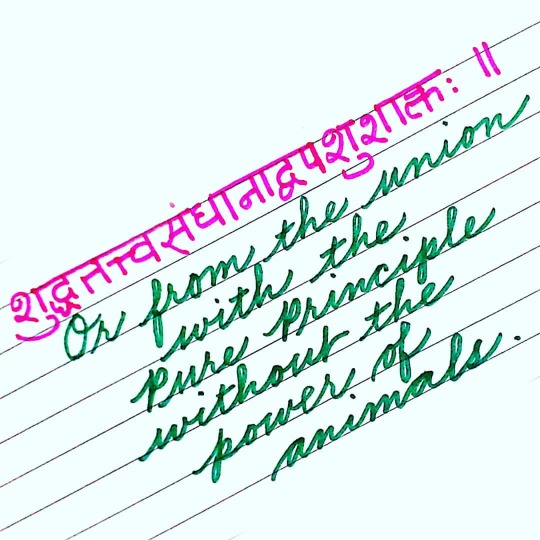 शुद्धतत्त्वसंधानाद्वपशुशक्तिः ॥
Or from the union
with the
pure principle
without the
power of
animals.